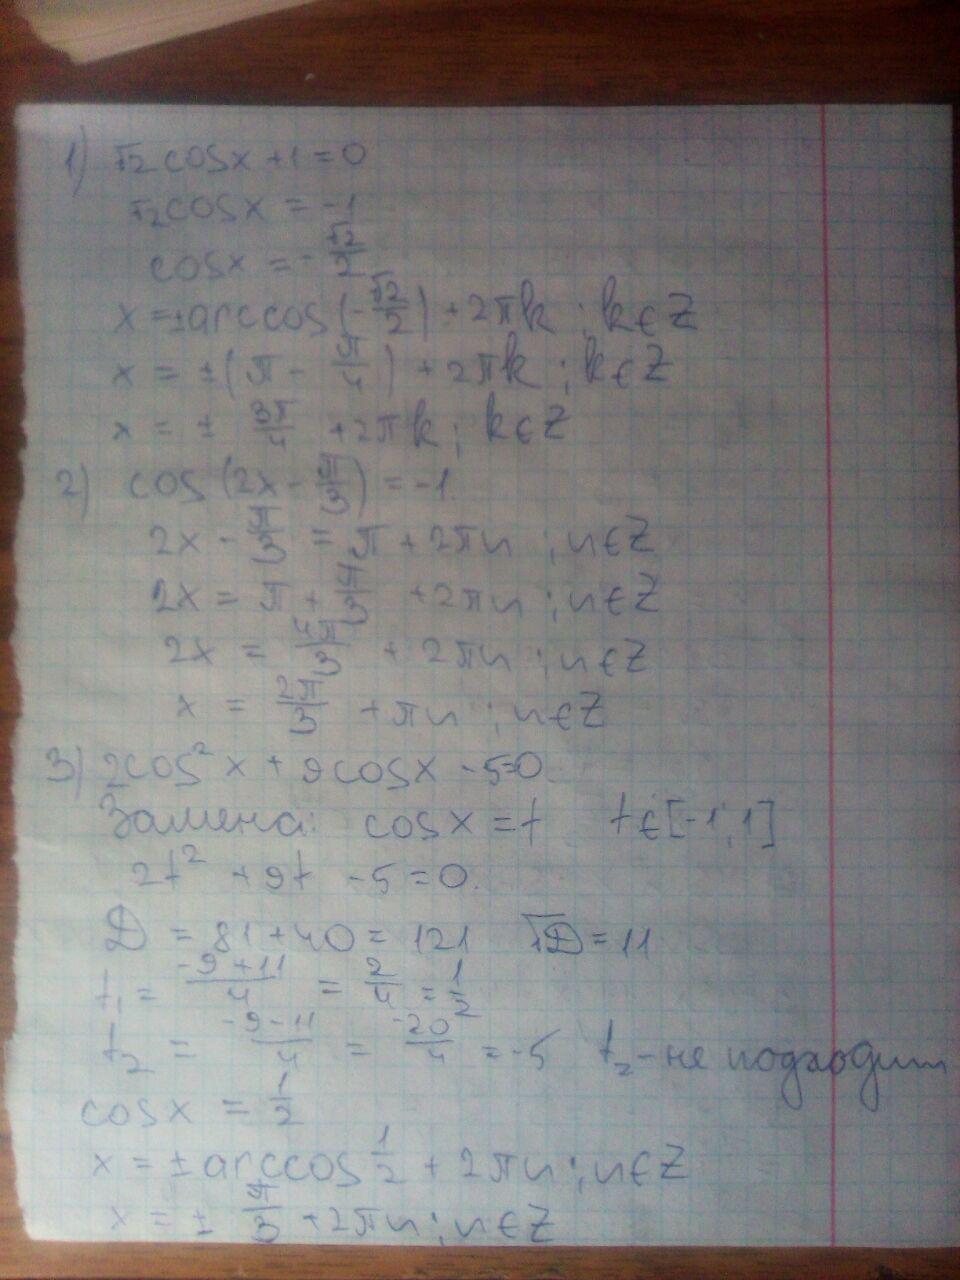 1) √2 cosx + 1 = 0
√2 cosx = -1
cosx = -√2/2
x = ± arccos(-√2/2) + 2πk ; k∈Z
x = ±(π - π/4) + 2πk ; k∈Z
x = ± 3π/4 + 2πk ; k∈Z
2) cos(2x - π/3) = -1
2x - π/3 = π + 2πn ; n∈Z
2x = π + π/3 + 2πn ; n∈Z
2x = 4π/3 + 2πn ; n∈Z
x = 2π/3 + πn ; n∈Z
3) 2cos²x + 9cosx - 5=0
Замена: cosx = t t∈[-1;1]
2t² + 9t - 5 = 0.
D = 81 + 40 = 121 √D = 11
t₁ = (-9+11)/4 = 2/4 = 1/2
t₂ = (-9-11)/4 = -20/4 = -5 t₂ - не подходит
cosx = 1/2
x = ± arccos 1/2 + 2πn ; n∈Z
x = ± π/3 + 2πn ; n∈Z